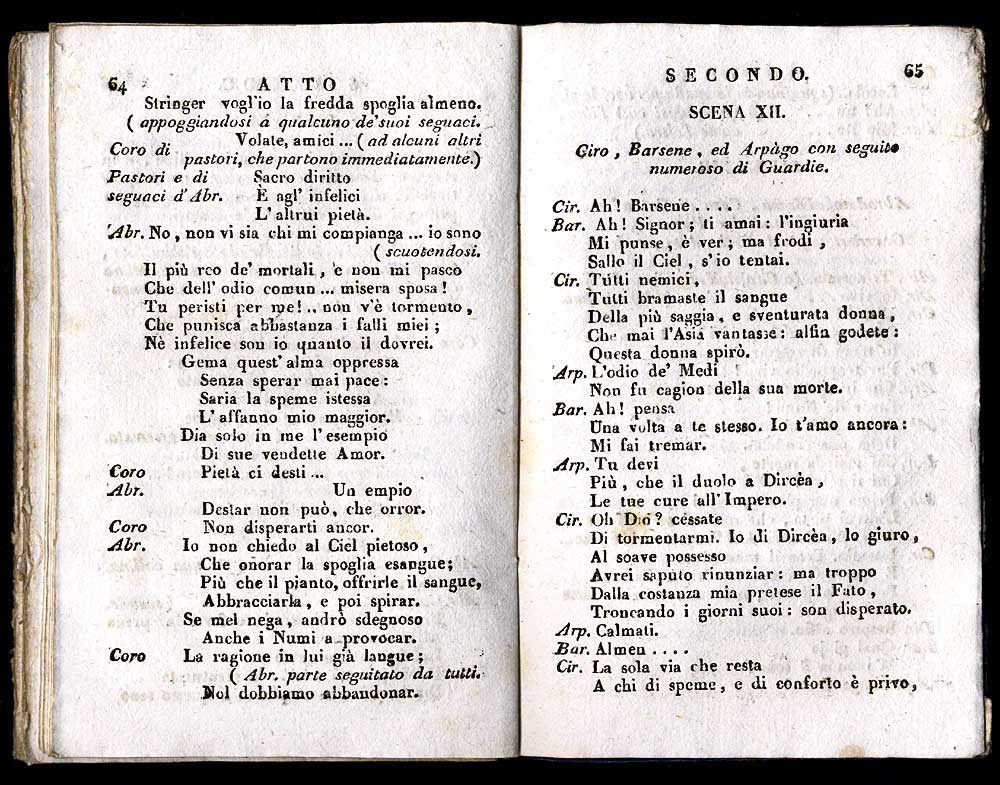 64 ATTO
Stringer vogl'io la fredda spoglia almeno.
( appoggiandosi á qualcuno de'suoi seguaci.
Volate, amici ... ( ad alcuni altri
Coro di pastori, che partono immediatamente.)
Pastori e di Sacro diritto
seguaci d'Abr. È agl' infelici
L' altrui pietà.
Abr. No, non vi sia chi mi compianga ... io sono
( scuotendosi.
Il più reo de' mortali, e non mi pasco
Che dell' odio comun ... misera sposa!
Tu peristi per me!.. non v'è tormento,
Che punisca abbastanza i falli miei;
Nè infelice son io quanto il dovrei.
Gema quest' alma oppressa
Senza sperar mai pace:
Saria la speme istessa
L' affanno mio maggior.
Dia solo in me l' esempio
Di sue vendette Amor.
Coro Pietà ci desti ...
Abr. Un empio
Destar non può, che orror.
Coro Non disperarti ancor.
Abr. Io non chiedo al Ciel pietoso,
Che onorar la spoglia esangue;
Più che il pianto, offrirle il sangue,
Abbracciarla, e poi spirar.
Se mel nega, andrò sdegnoso
Anche i Numi a provocar.
Coro La ragione in lui già langue;
( Abr. parte seguitato da tutti.
Nol dobbiamo abbandonar.
SECONDO. 65
SCENA XII.
Ciro, Barsene, ed Arpàgo con seguito
numeroso di Guardie.
Cir. Ah! Barsene ....
Bar. Ah! Signor; ti amai: l'ingiuria
Mi punse, è ver; ma frodi,
Sallo il Ciel, s'io tentai.
Cir. Tutti nemici,
Tutti bramaste il sangue
Della più saggia, e sventurata donna,
Che mai l'Asia vantasse: alfin godete:
Questa donna spirò.
Arp. L'odio de' Medi
Non fu cagion della sua morte.
Bar. Ah! pensa
Una volta a te stesso. Io t'amo ancora:
Mi fai tremar.
Arp. Tu devi
Più, che il duolo a Dircèa,
Le tue cure all' Impero.
Cir. Oh Dio? cessate
Di tormentarmi. Io di Dircèa, lo giuro,
Al soave possesso
Avrei saputo rinunziar: ma troppo
Dalla costanza mia pretese il Fato,
Troncando i giorni suoi: son disperato.
Arp. Calmati.
Bar. Almen ....
Cir. La sola via che resta
A chi di speme, e di conforto è privo,